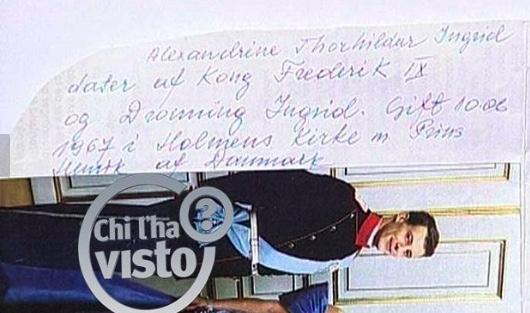 Alexandrine Thorhildur Ingrid
dater af Kong Frederik IX
og Dronning Ingrid. Gift 10.06
1967 i Holmens Kirke m Prins
Henrik af Danmark
Chi l'ha
visto
?